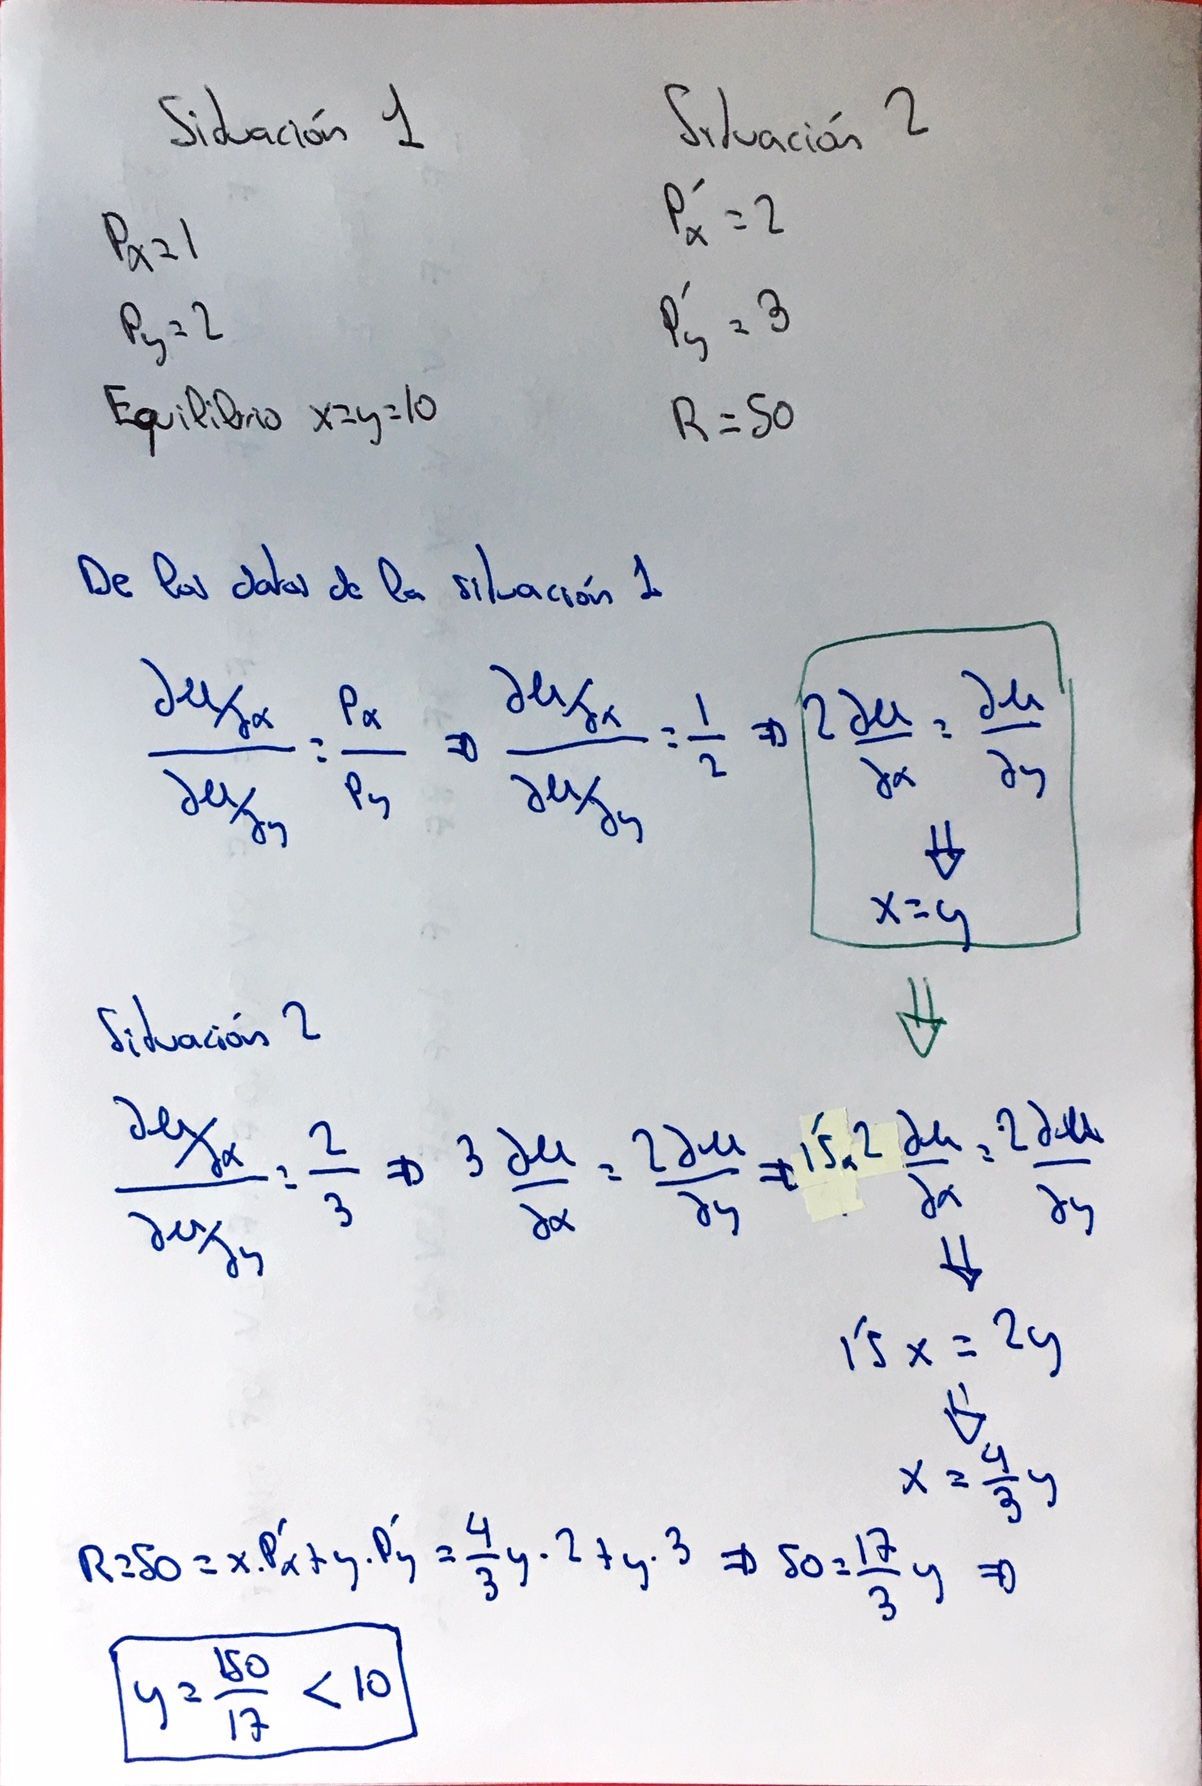 Situación 1
Px=1
Py=2
Equilibrio x=y=10
Situación 2
P´x=2
P´y=3
R=50
De los datos de la situación 1
∂u/∂x / ∂u/∂y = Px/Py ⇒ ∂u/∂x / ∂u/∂y = 1/2 ⇒ 2 ∂u/∂x = ∂u/∂y
⇓
x=y
⇓
Situación 2
∂u/∂x / ∂u/∂y = 2/3 ⇒ 3 ∂u/∂x = 2∂u/∂y ⇒ 1´5x2 ∂u/∂x = 2∂u/∂y
⇓
1´5x = 2y
⇓
x = 4/3 y
R=50 = x·P´x+y·P´y = 4/3 y·2+y·3 ⇒ 50=17/3 y ⇒
y=150/17 < 10